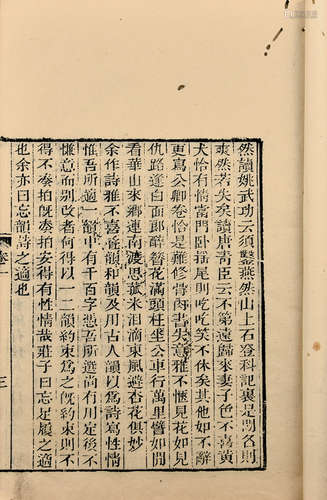 然讀姚武功云須鑿燕然山上石登科記裏是閒名則
爽然若失矣讀唐青臣云不第遠歸來妻子色不喜黃
犬恰有情當門臥搖尾則吃吃笑不休矣其他如不辭
更寫公卿卷恰是難修骨肉書失意雅不愜見花如見
仇路逢白面郎醉簪花滿頭枉坐公車行萬里譬如閒
看華山來鄉連南渡思菰米淚滴東風避杏花俱妙
余作詩雅不喜疊韻和韻及用古人韻以爲詩寫性情
惟吾所適一韻中有千百字憑吾所選尚有用定後不
慊意而别改者何得以一二韻約束爲之既約束則不
得不湊拍既湊拍安得有性情哉莊子曰忘足履之適
也余亦曰忘韻詩之適也
卷一
三